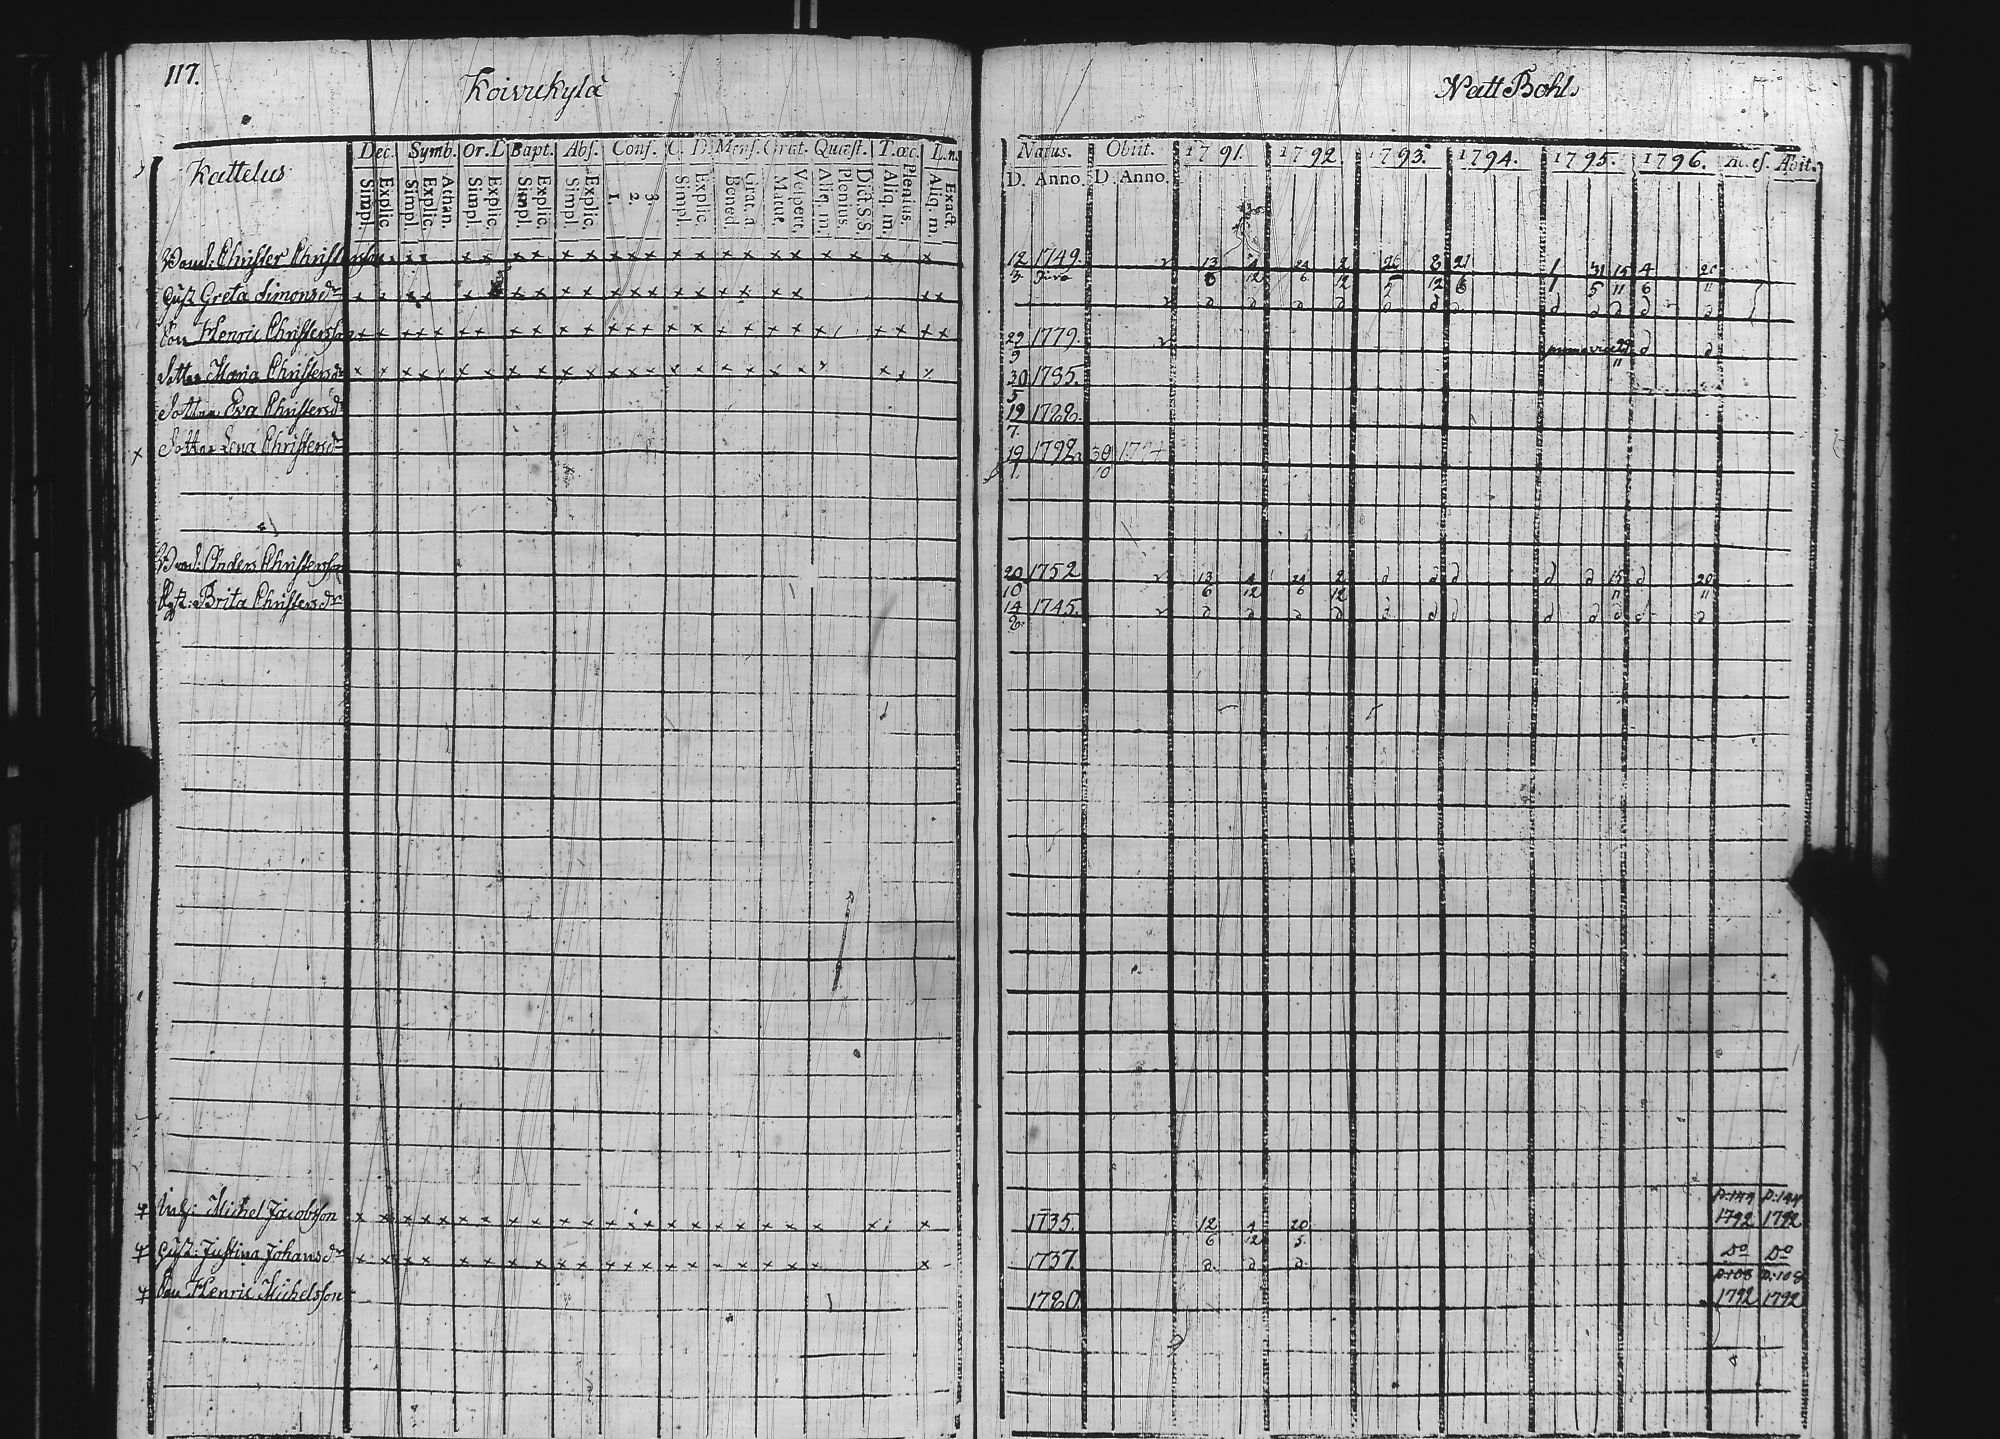 117.
Koivukylä
Natt Bohl.
Kattelus
Dec. Symb. Or. D Bapt. Abs. Conf. C. D. Mens. Grat. Quæst. T. œc. L.n.
Simpl. Explic. Simpl. Explic. Athan. Simpl. Explic. Simpl. Explic. Simpl. Explic. 1 2. 3. Simpl. Explic. Bened. Grat. a Matut. Vespert. Aliq. m. Plenius. Dict. S. S. Aliq. m. Plenius. Aliq. m. Exact.
Natus. Obiit. 1791. 1792 1793. 1794. 1795. 1796. Abit.
D. Anno. D. Anno.
Christer Christersson 12 1749. 13 4 24 2 26 8 21 1 31 15 4 20
3 6 12 6 12 5 12 6 1 5 11 6 11
Hust Greta Simonsdr d d d d d d d d d d d d
Son Henric Christersson 29 1779. d d
9 11
Dotter Maria Christersdr 30 1785.
5
Dotter Eva Christersdr 19 1788.
7.
x Dotter Lena Christersdr 19 1792 30
1. 10
Anders Christersson 20 1752 13 4 24 2 d d d d d 15 d 20
10 6 12 6 12 11 11
Brita Christersdr 14 1745. d d d d d d d d d d d d
Michel Jacobsson 1735. 12 4 20 1792 1792
6 12 5.
Hust: Justina Johansdr 1737. d. d d. Do Do
p:108 p:108
Son Henric Michelsson 1780. 1792 1792